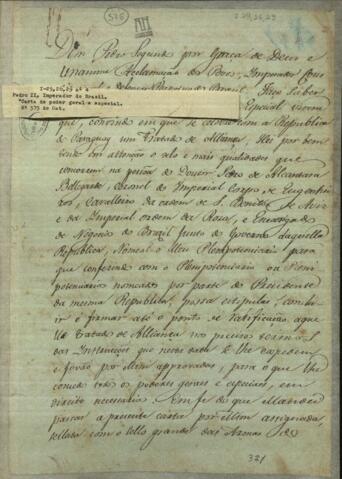 I-29,26,29
525
III
Dom Pedro Segundo por Graça de Deos e
Unanime Acclamação dos Povos, Imperador Cons
I-29,26,29 nº 4
Pedro II, Imperador do Brasil.
"Carta de poder geral e especial.
Nº 575 do Cat.
do Brasil, Faço Saber
Especial virem
que, convindo em que se celebre com a Republica
de Paraguay um Tratado de Alliança, Hei por bem
tendo em attenção o zelo e mais qualidades que
concorrem na pessôa do Doutor Pedro de Alcantara
Bellegarde, Coronel do Imperial Corpo de Engenhei
ros, Cavalleiro da ordem de S. Bento de Aviz
e da Imperial ordem da Rosa, e Encarregado
de Negocios do Brazil junto do Governo daquella
Republica, Nomeal-o Meu Plenipotenciario para
que conferindo com o Plenipotenciario ou Pleni
potenciarios nomeados por parte do Presidente
da mesma Republica, possa estipular, conclu
ir e firmar até o ponto de ratificação, aquel
le Tratado de Alliança nos precisos termos
das Instrucções que nesta data se lhe expedem
e forão por Mim approvadas, para o que lhe
concedo todos os poderes geraes e especiaes, em
direito necessarios. Em fé do que Mandei
passar a presente carta por Mim assignada
sellada com o sello grande das Armas do
321